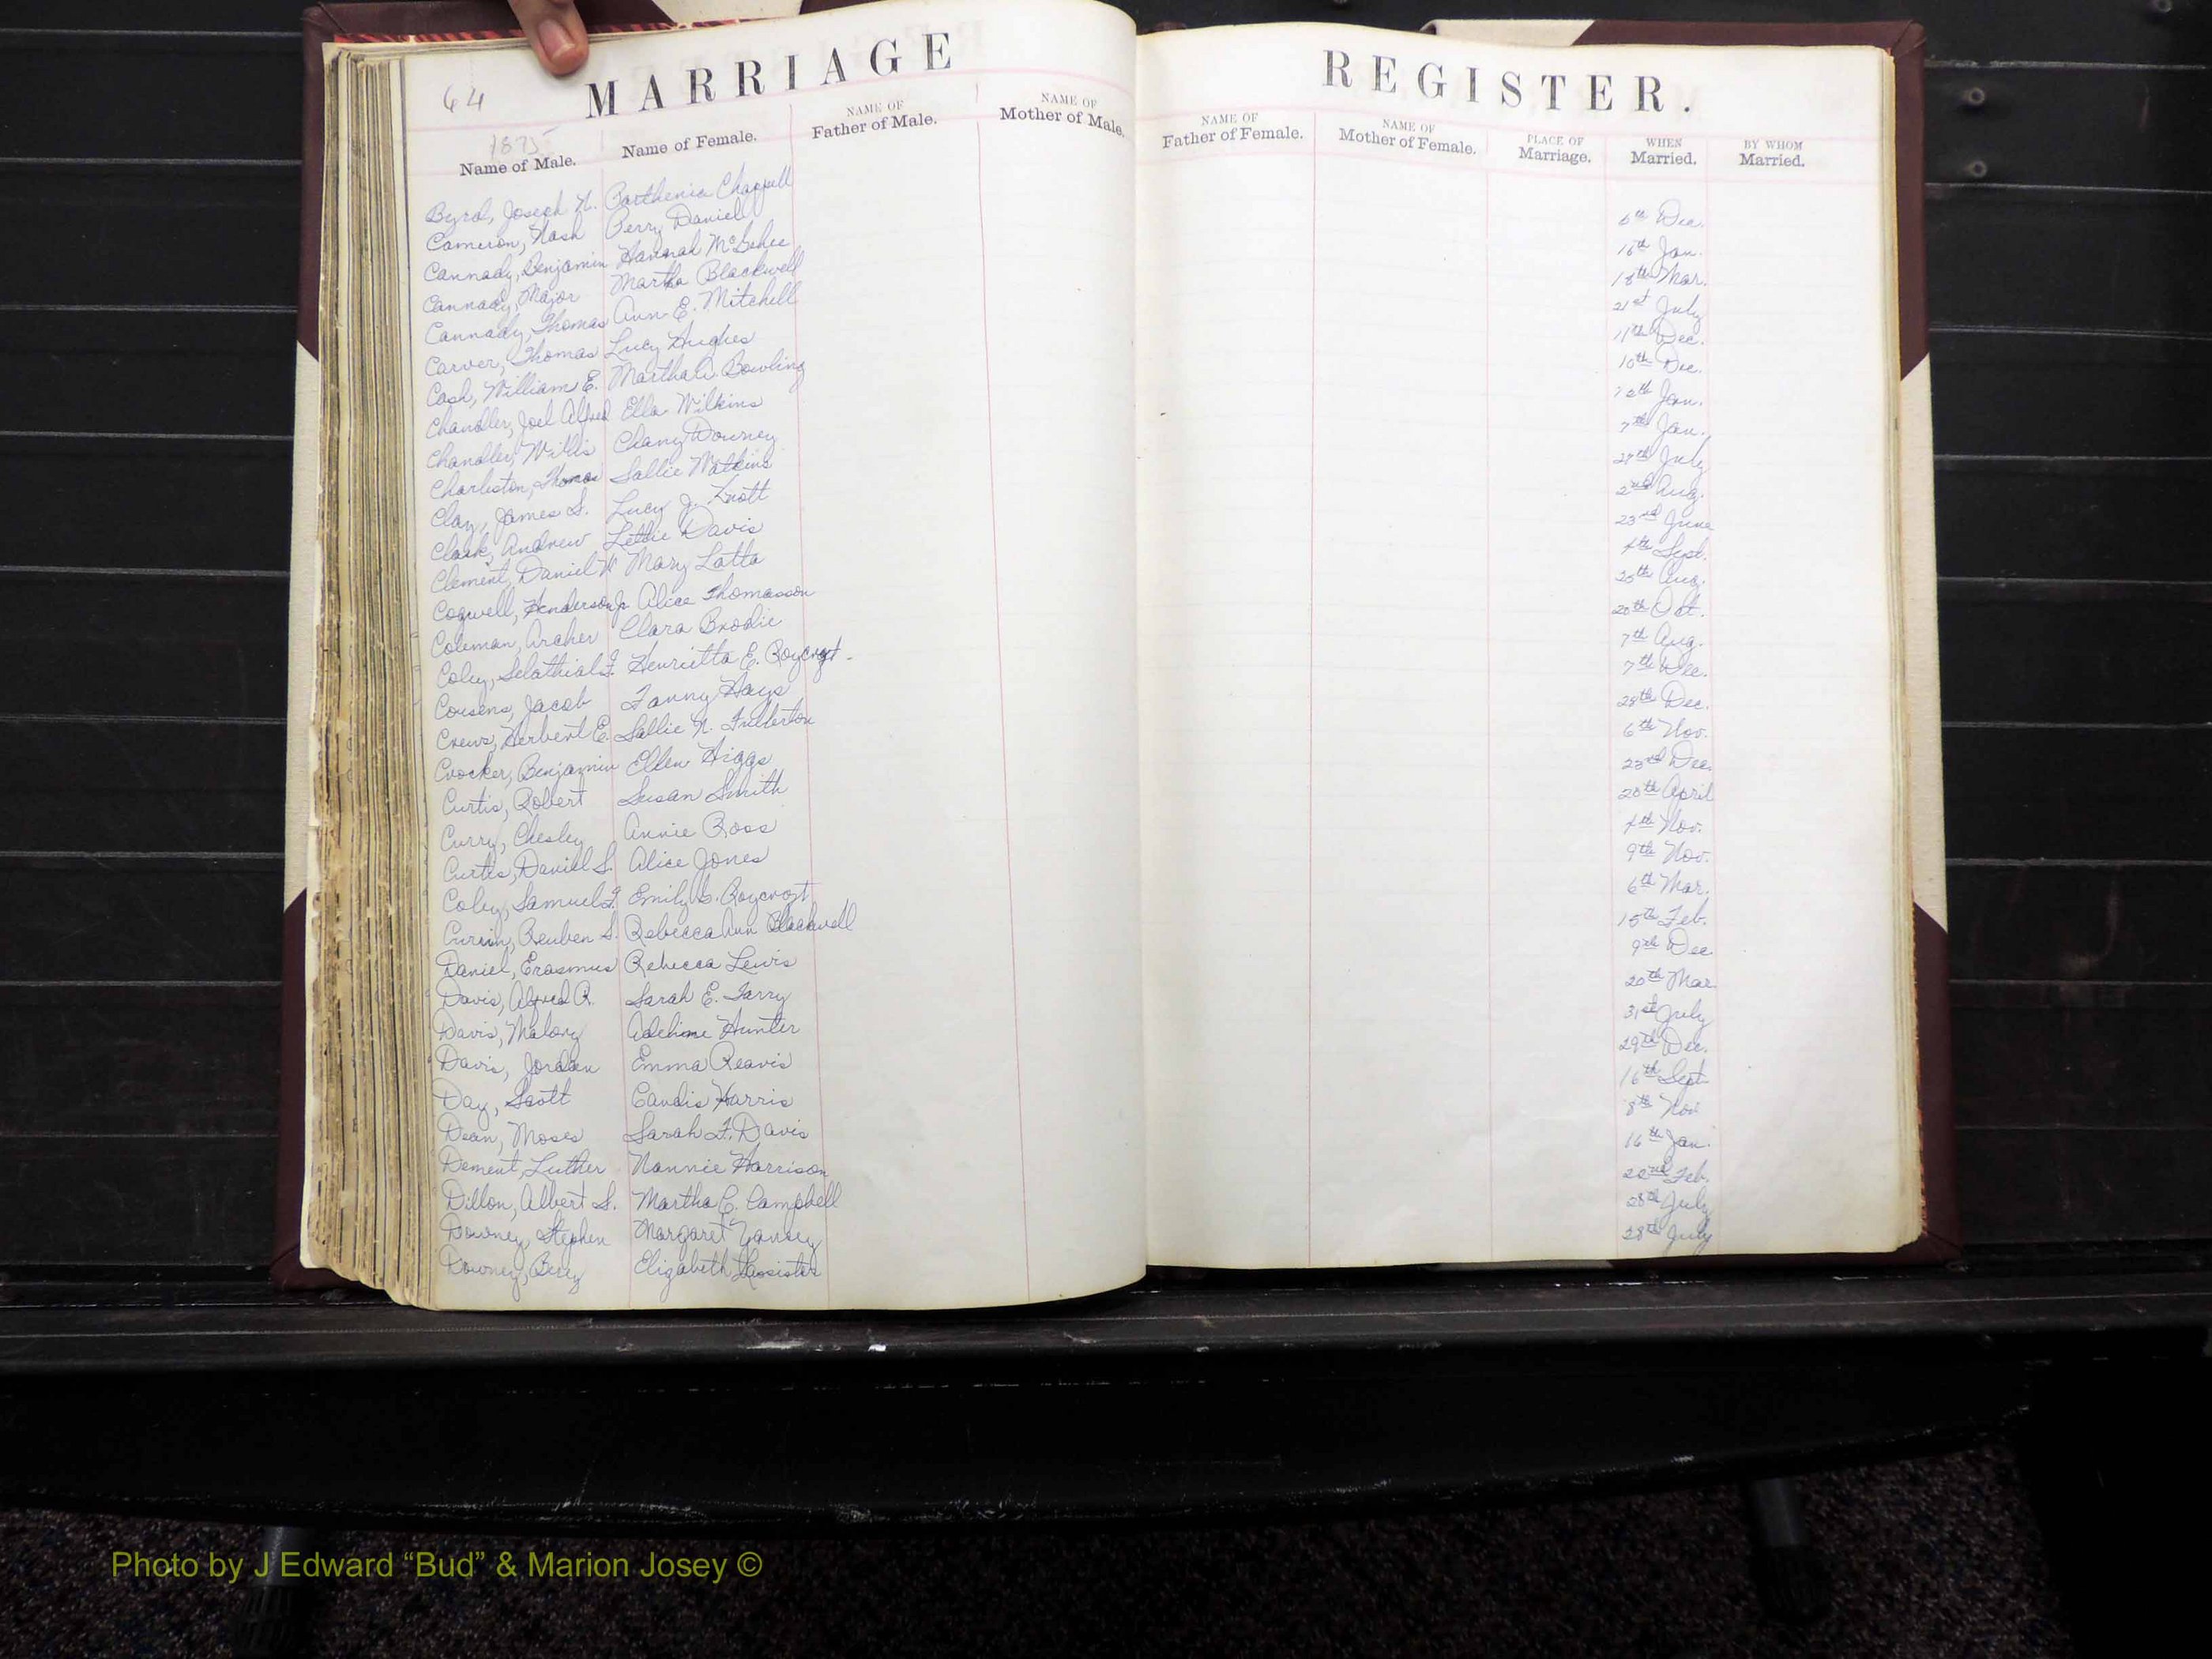 64
MARRIAGE REGISTER.
1875
Name of Male. Name of Female. NAME OF Father of Male. NAME OF Mother of Male. NAME OF Father of Female. NAME OF Mother of Female. PLACE OF Marriage. WHEN Married. BY WHOM Married.
Byrd, Joseph N. Parthenia Chappell 6th Dec.
Cameron, Nash Perry Daniel 16th Jan.
Cannady, Benjamin Hannah McGehee 18th Mar.
Cannady, Major Martha Blackwell 21st July
Cannady, Thomas Ann E. Mitchell 11th Dec.
Carver, Thomas Lucy Hughes 10th Dec.
Cash, William E. Martha A. Bowling Jan.
Chandler, Joel Alfred Ella Wilkins 7th Jan.
Chandler, Willis Chany Downey July
Charleston, Thomas Sallie Watkins 2nd Aug.
Clay, James S. Lucy J. Knott 23rd June
Clark, Andrew Lettie Davis Sept.
Clement, Daniel W Mary Latta 25th Aug.
Cogwell, Henderson Jr. Alice Thomasson 20th Oct.
Coleman, Archer Clara Brodie 7th Aug.
Coley, Selathial F. Henrietta E. Roycroft 7th Dec.
Cousens, Jacob Fanny Hays 28th Dec.
Crews, Herbert E. Sallie N. Fullerton 6th Nov.
Crocker, Benjamin Ellen Higgs 23rd Dec.
Curtis, Robert Susan Smith 20th April
Curry, Chesley Annie Ross Nov.
Curtis, Daniel S. Alice Jones 9th Nov.
Coley, Samuel F. Emily S. Roycroft 6th Mar.
Currin, Reuben S. Rebecca Ann Blackwell 15th Feb.
Daniel, Erasmus Rebecca Lewis 9th Dec.
Davis, Alfred R. Sarah E. Tarry 20th Mar.
Davis, Malory Adeline Hunter 31st July
Davis, Jordan Emma Reavis 29th Dec.
Day, Scott Candis Harris 16th Sept.
Dean, Moses Sarah F. Davis 8th Nov.
Dement, Luther Nannie Harrison 16th Jan.
Dillon, Albert S. Martha C. Campbell 22nd Feb.
Downey, Stephen Margaret Yancey 28th July
Downey, Berry Elizabeth 28th July
Photo by J Edward “Bud” & Marion Josey ©